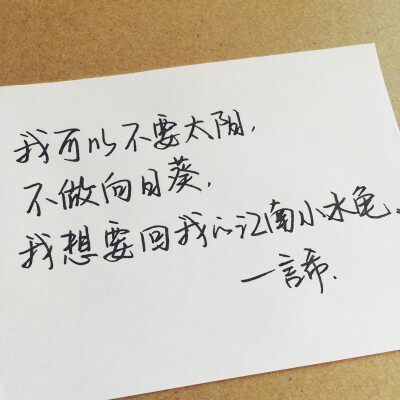 我可以不要太阳,
不做向日葵,
我想要回我的江南小水龟。
—言希.